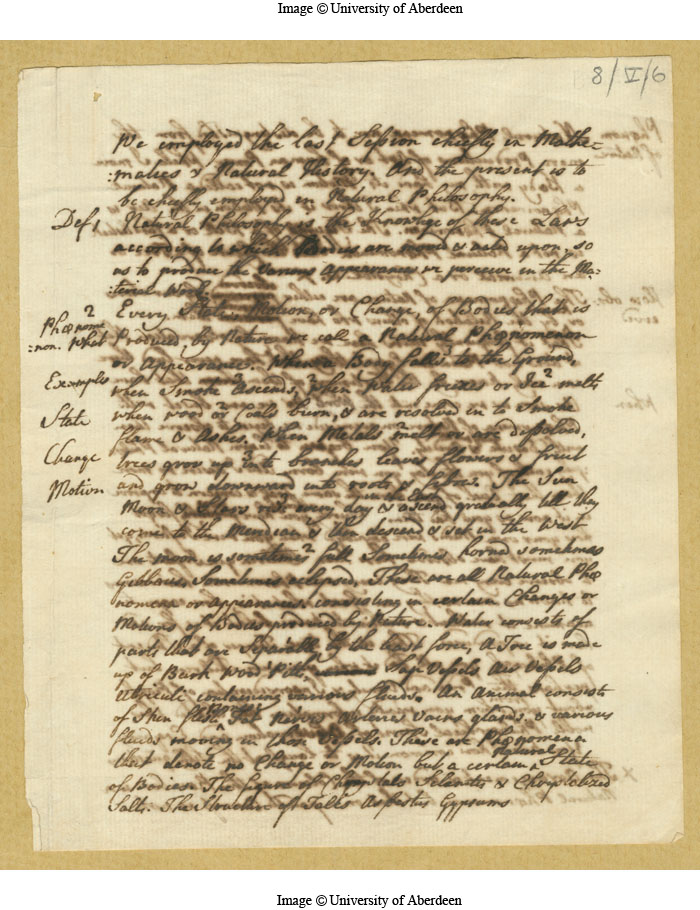 Image © University of Aberdeen
8/V/6
We employed the last Session chiefly in Mathe-
:maticks & Natural History. And the present is to
be chiefly employed in Natural Philosophy.
Def 1 Natural Philosophy is the Knowlege of these Laws
according to which Bodies are moved & acted upon, so
as to produce the various Appearances we perceive in the Ma-
:terial World
2 Phænome
:non. What
Every State, Motion, or Change, of Bodies that is
Produced by Nature we call a Natural Phænomenon
or Appearance. When a Body falls to the Ground,
Examples
when Smoke ascends, when Water freezes or Ice melts
State
when wood or Coals burn, & are resolved in to Smoke
flame & Ashes. When Metals melt or are dissolved,
Change
trees grow up into branches leaves flowers & fruit
and grow downward into roots & fibres. The Sun
Motion
Moon & Stars rise every day in the East & ascend gradually till they
come to the Meridian & then descend & set in the West
The moon is sometimes full Sometimes horned sometimes
Gibbous, Sometimes eclipsed. These are all Natural Phæ
nomena or appearances. consisting in certain Changes or
Motions of Bodies produced by Nature. Water consists of
parts that are Separable by the least force, A Tree is made
up of Bark Wood Pith, Sap Vessels Air Vessels
Utriculi containing various fluids. An Animal consists
of Skin flesh Fat Nerves Arteries Vains glands, & various
fluids moving in those Vessels. These are Phænomena
that denote no Change or Motion but a certain Natural State
of Bodies. The figure of Chrystals Selenites & Chrystalized
Salts. The Structure of Talks Asbestus Gypsums
Image © University of Aberdeen